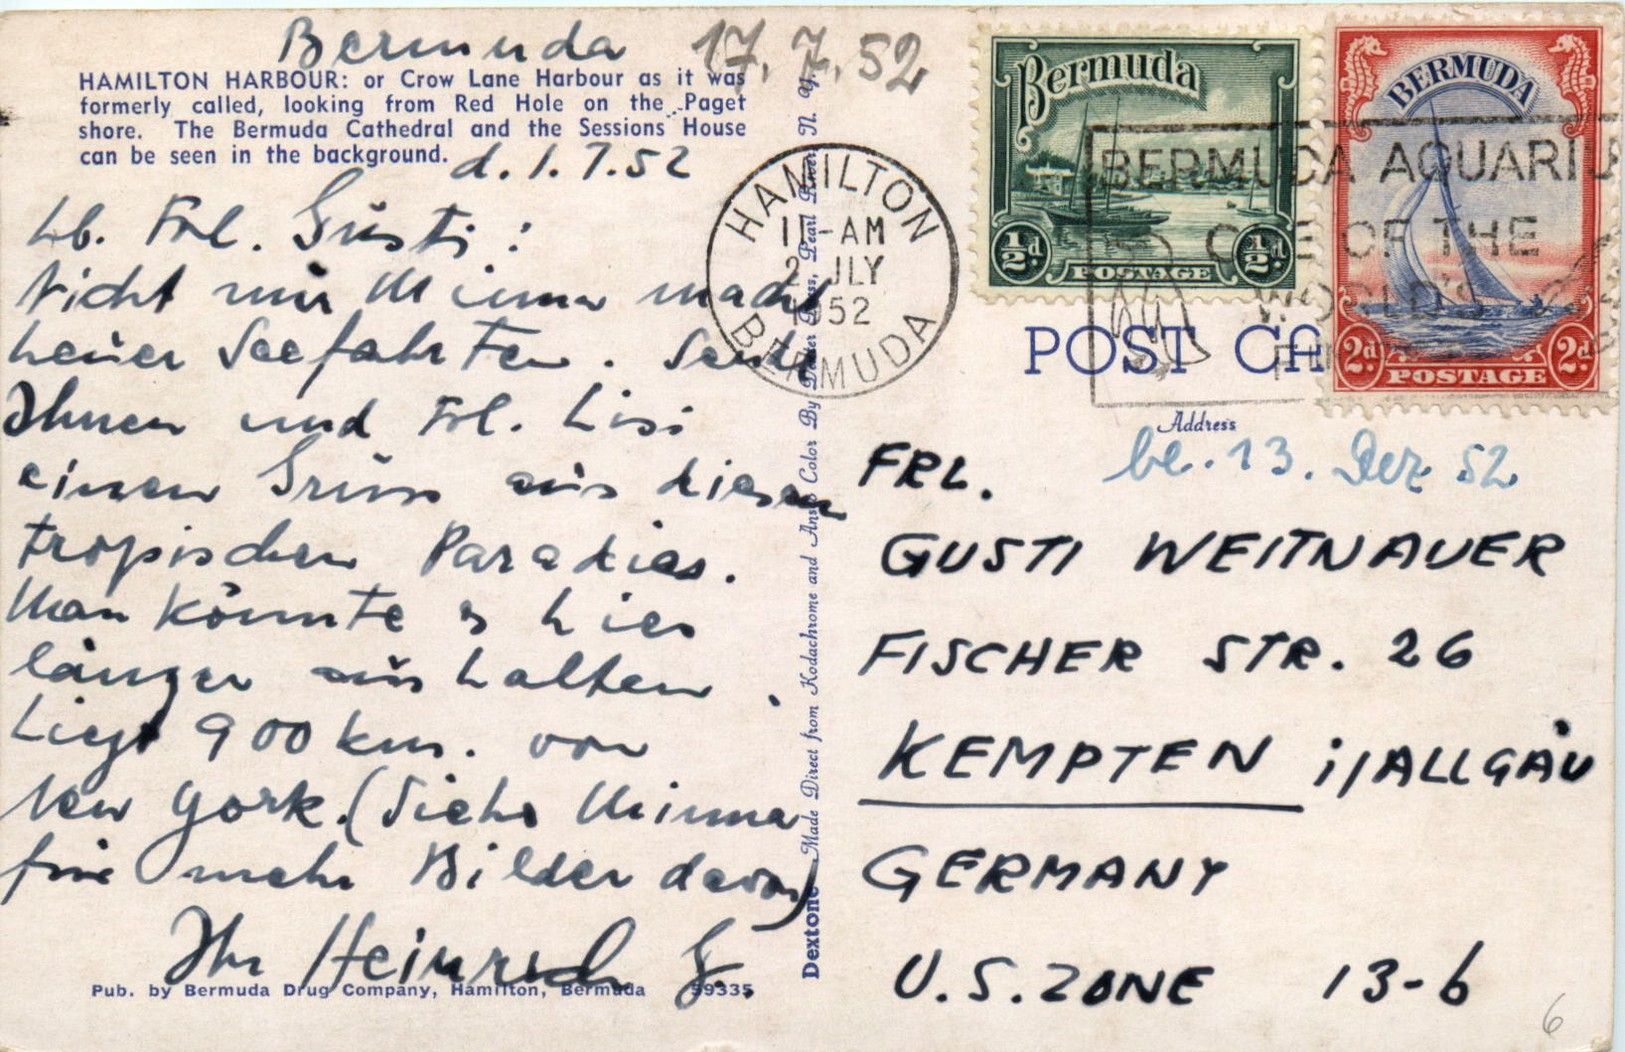 Bermuda 17.7.52
HAMILTON HARBOUR: or Crow Lane Harbour as it was
formerly called, looking from Red Hole on the Paget
shore. The Bermuda Cathedral and the Sessions House
can be seen in the background.
d. 1.7.52
Lb. Frl. Gusti:
Nicht nur Minna macht
heuer Seefahrten. Sende
Ihnen und Frl. Lisi
einen Gruss aus diesem
tropischen Paradies.
Man könnte es hier
länger aushalten.
Liegt 900 km. von
New York. (Siehe Minna
für mehr Bilder davon)
Ihr Heinrich G.
Pub. by Bermuda Drug Company, Hamilton, Bermuda 59335
Dextone Made Direct from Kodachrome and Ansco Color By Dexter Press, Pearl River, N. Y.
HAMILTON
11-AM
2 JLY
1952
BERMUDA
Bermuda
½d ½d
POSTAGE
BERMUDA
2d 2d
POSTAGE
BERMUDA AQUARIU
ONE OF THE
WORLD'S
POST CA
Address
be. 13. Dez 52
FRL.
GUSTI WEITNAUER
FISCHER STR. 26
KEMPTEN i/ALLGÄU
GERMANY
U.S. ZONE 13-6
6